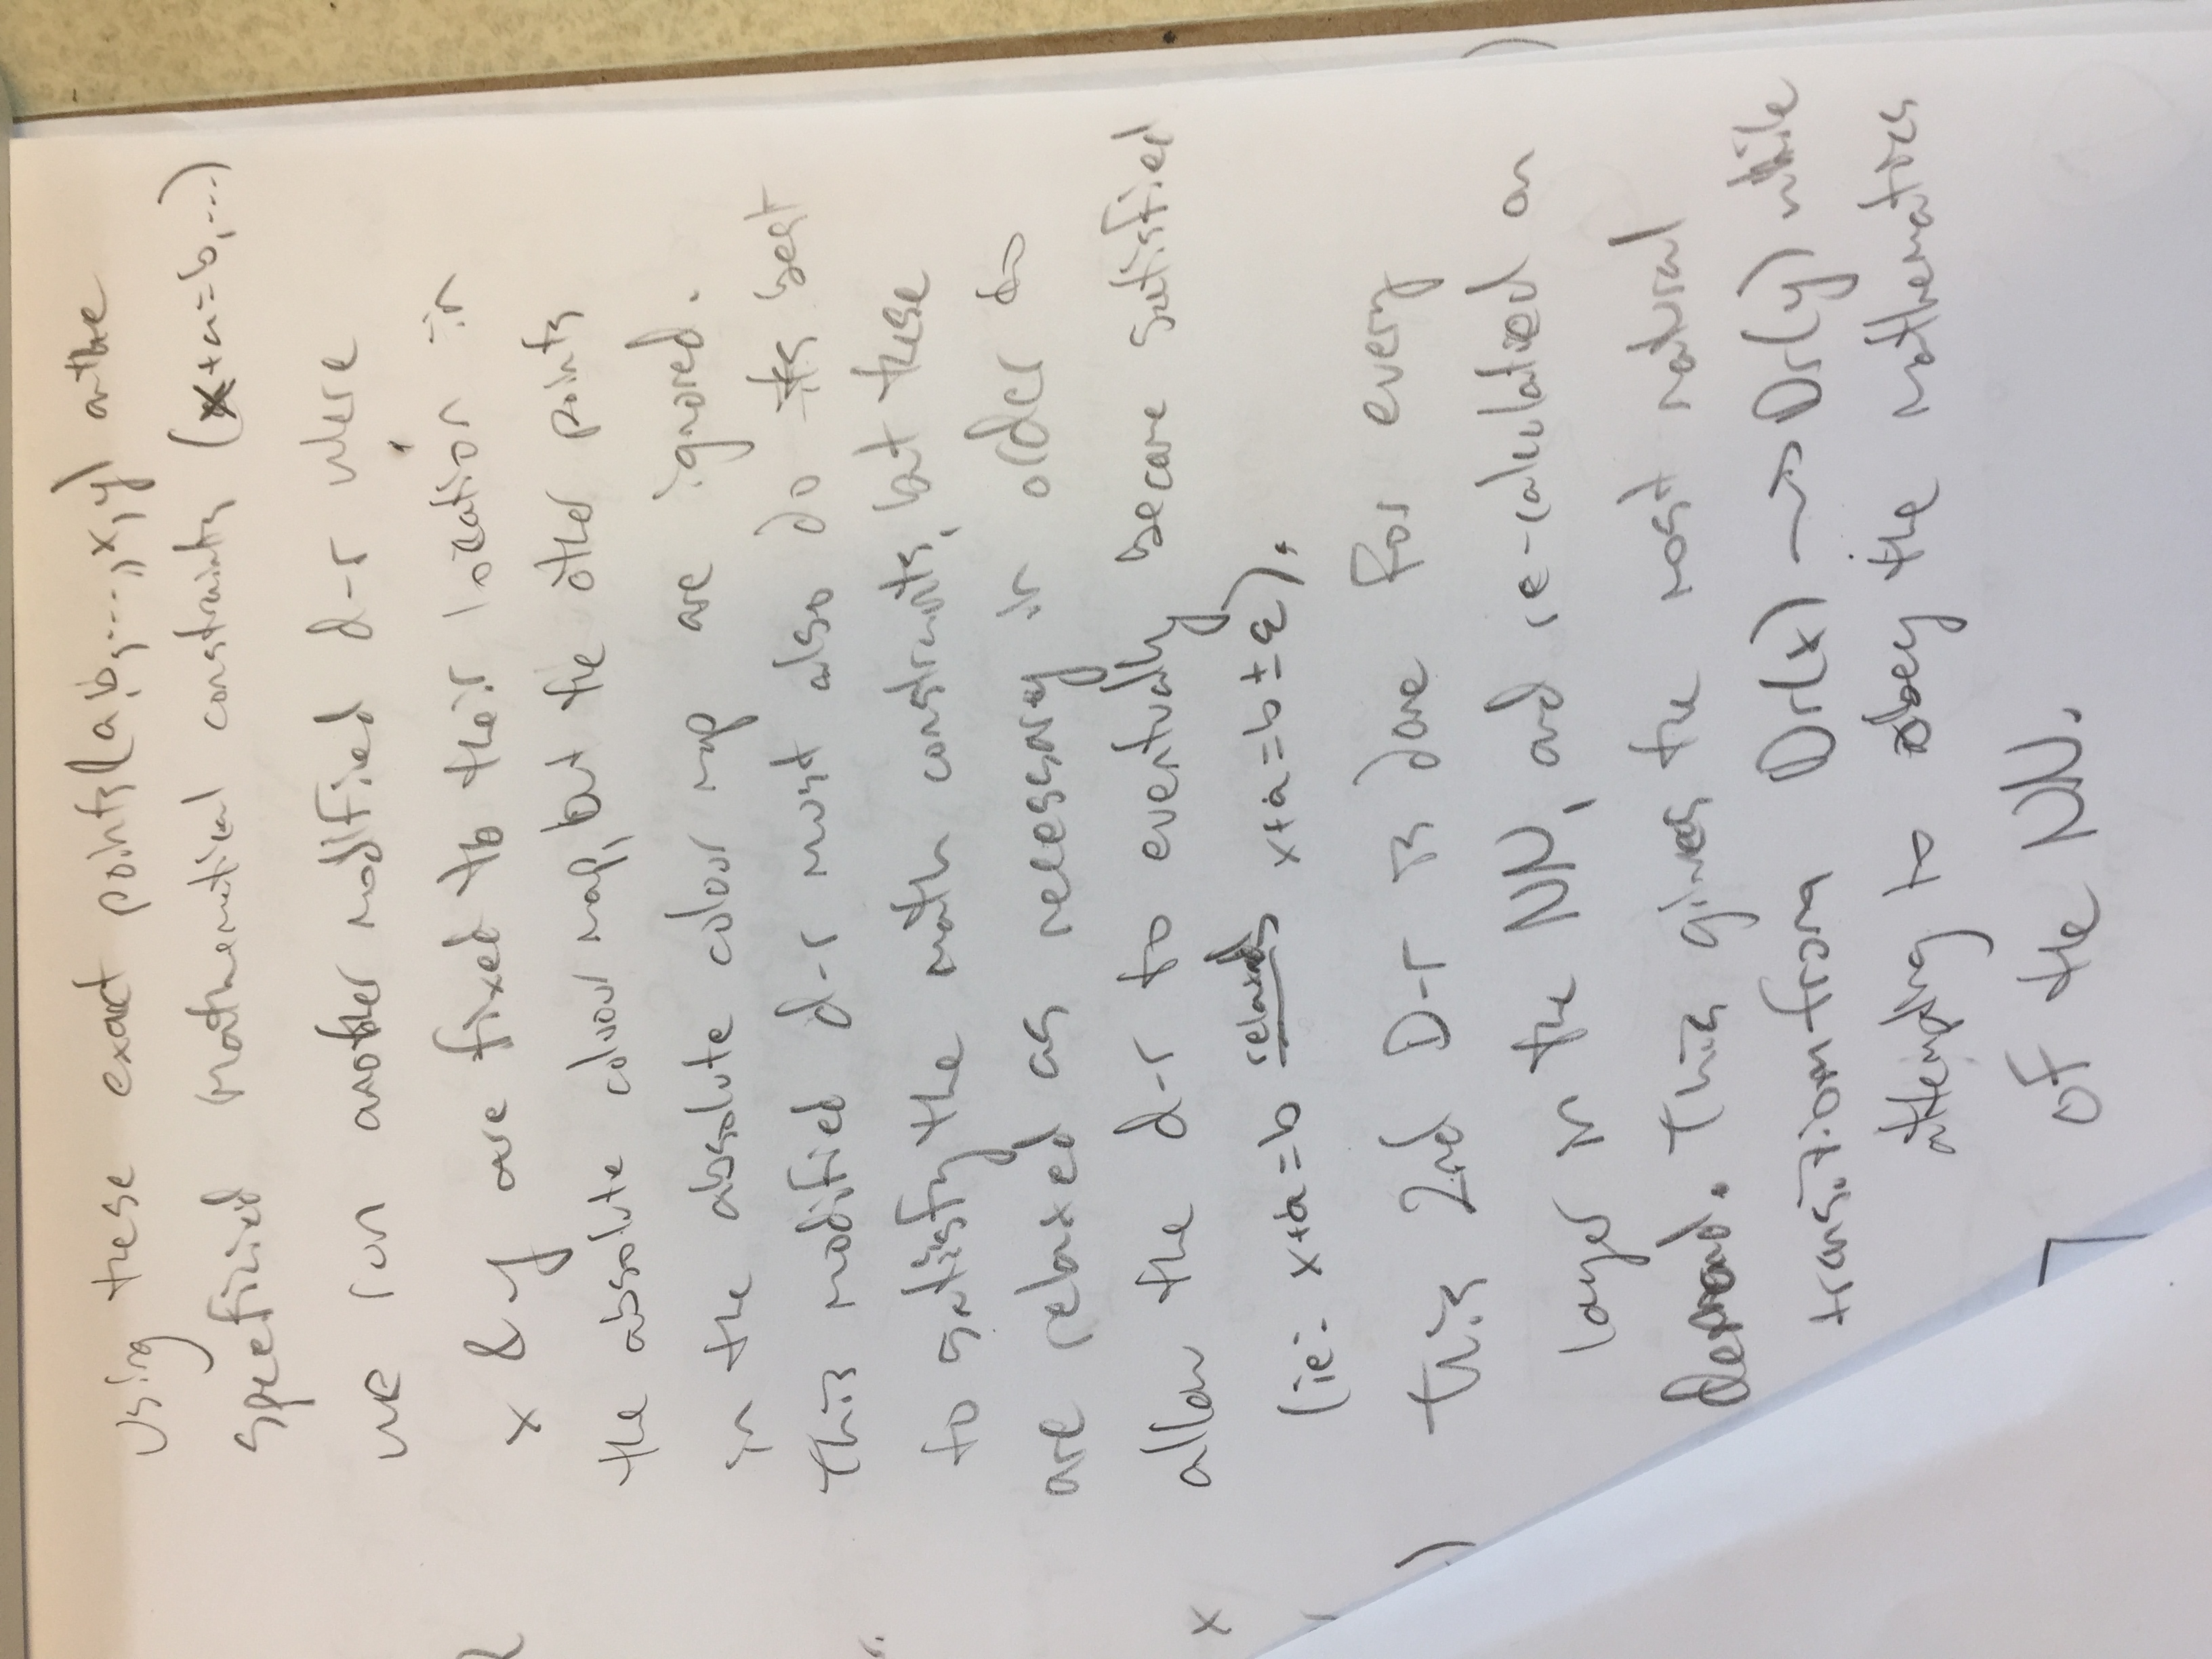 Using these exact points (a,b,...,x,y) on the
specifizied Mathematical constraints (x+a=b,...)
we run another modified d-r where
x & y are fixed to their location in
the absolute colour map, but the other points
in the absolute colour map are ignored.
This modified d-r must also do its best
to satisfy the math constraints, but these
are relaxed as necessary in order to
allow the d-r to eventually become satisfied
x
(ie: x+a=b relaxed x+a=b±ε).
This 2nd D-r is done for every
)
layer in the NN, and re-calculatied on
demand. This gives the most natural
transition from Dr(x) → Dr(y) while
attempting to obey the mathematics
of the NN.